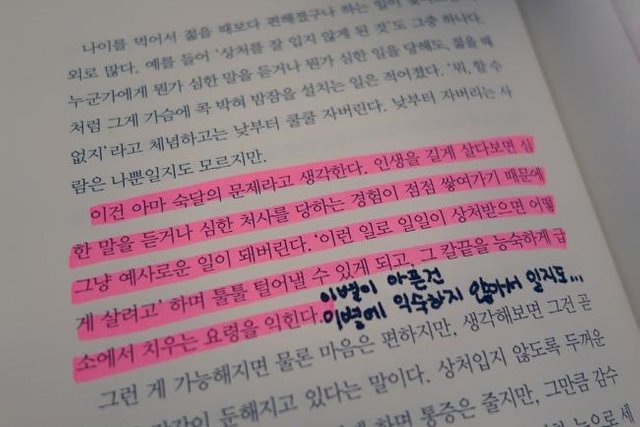 나이를 먹어서 젊을 때보다 편해졌구나 하는 일이
외로 많다. 예를 들어 ‘상처를 잘 입지 않게 된 것’도 그중 하나다.
누군가에게 뭔가 심한 말을 듣거나 뭔가 심한 일을 당해도, 젊을 때
처럼 그게 가슴에 콕 박혀 밤잠을 설치는 일은 적어졌다. ‘뭐, 할 수
없지’라고 체념하고는 낮부터 쿨쿨 자버린다. 낮부터 자버리는 사
람은 나뿐일지도 모르지만.
이건 아마 숙달의 문제라고 생각한다. 인생을 길게 살다보면 심
한 말을 듣거나 심한 처사를 당하는 경험이 점점 쌓여가기 때문에
그냥 예사로운 일이 돼버린다. ‘이런 일로 일일이 상처받으면 어떻
게 살려고’ 하며 툴툴 털어낼 수 있게 되고, 그 칼끝을 능숙하게 급
소에서 치우는 요령을 익힌다.
이별이 아픈건
이별에 익숙하지 않아서 일지도...
그런 게 가능해지면 물론 마음은 편하지만, 생각해보면 그건 곧
감각이 둔해지고 있다는 말이다. 상처입지 않도록 두꺼운
하면 통증은 줄지만, 그만큼 감수
눈으로 세